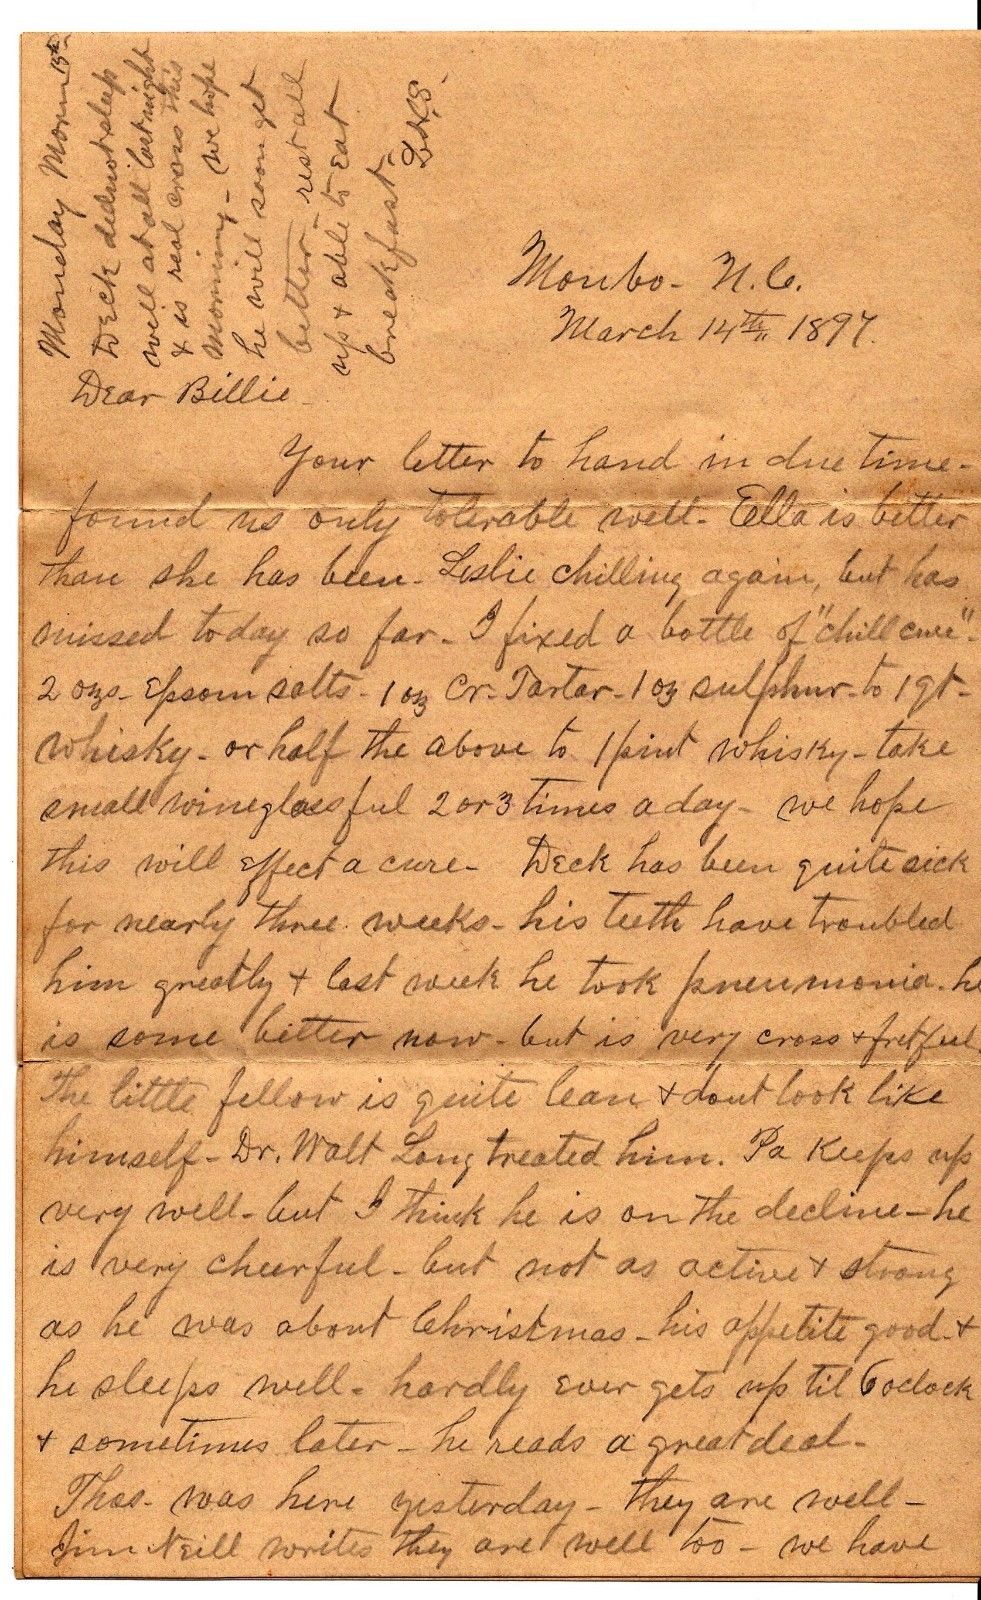 Monday Morn 15th
Deck did not sleep
well at all last night
& is real cross this
morning - we hope
he will soon get
better - rest all
up & able to Eat
breakfast -
Monbo - N.C.
March 14th 1897.
Dear Billie -
Your letter to hand in due time -
found us only tolerable well - Ella is better
than she has been - Leslie chilling again, but has
missed today so far - I fixed a bottle of "chill cure" -
2 ozs - Epsom salts - 1 oz Cr. Tartar - 1 oz sulphur - to 1 qt -
whisky - or half the above to 1 pint whisky - take
small wineglassful 2 or 3 times a day - we hope
this will Effect a cure - Deck has been quite sick
for nearly three weeks - his teeth have troubled
him greatly & last week he took pneumonia - he
is some better now - but is very cross & fretful.
The little fellow is quite lean & dont look like
himself - Dr. Walt Long treated him. Pa Keeps up
very well - but I think he is on the decline - he
is very cheerful - but not as active & strong
as he was about Christmas - his appetite good - &
he sleeps well - hardly Ever gets up til 6 oclock
& sometimes later - he reads a great deal -
Thos - was here yesterday - they are well -
Jim Neill writes they are well too - we have